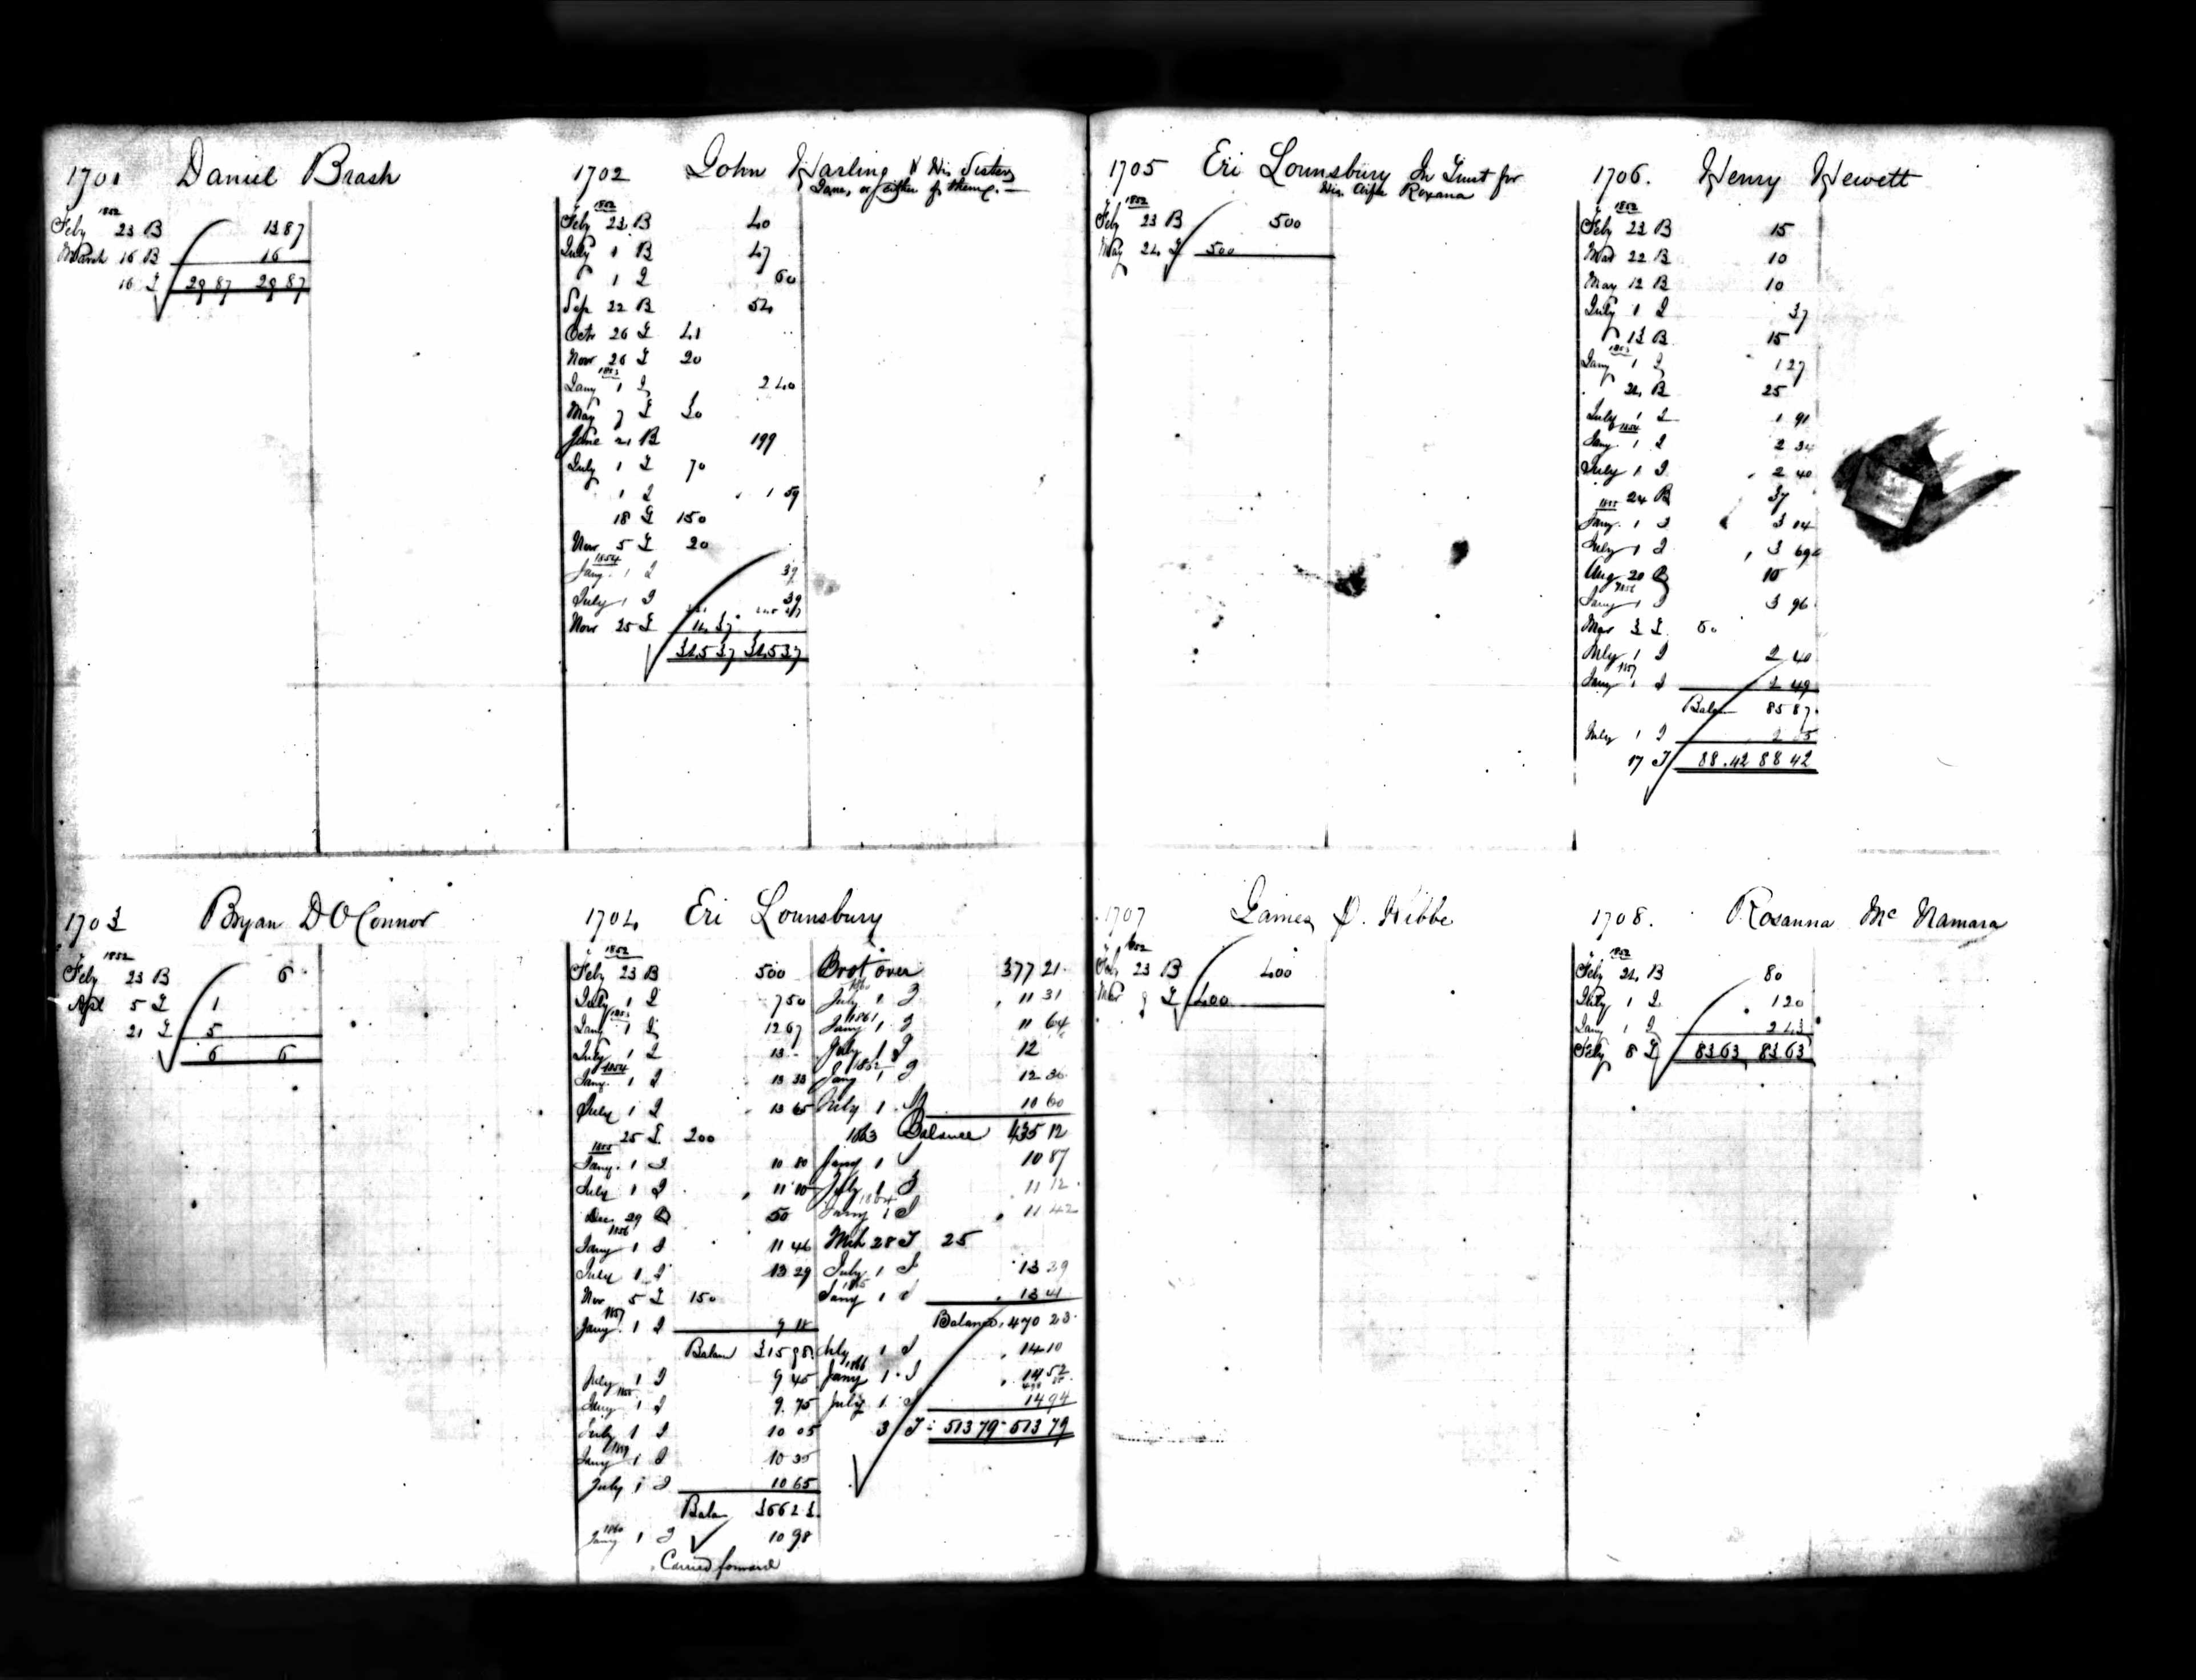 1701 Daniel Brash
1852
Feby 23 B 13 87
March 16 B 16
16 T 29 87 29 87
1702 John Harling & His Sister
Jane, or either of them.
1852
Feby 23 B 40
July 1 B 47
1 I 60
Sep 22 B 54
Octr 26 T 41
Nov 26 T 20
1853
Jany 1 I 2 40
May 7 T 30
June 21 B 199
July 1 T 70
1 I 1 59
18 T 150
Nov 5 T 20
1854
Jany 1 I 39
July 1 I 39
Nov 25 T 14 37
345 37 345 37
1703 Bryan D O Connor
1852
Feby 23 B 6
Apl 5 T 1
21 T 5
6 6
1704 Eri Lounsbury
1852
Feby 23 B 500
July 1 I 7 50
1853
Jany 1 I 12 67
July 1 I 13 -
1854
Jany 1 I 13 33
July 1 I 13 65
25 T 200
1855
Jany 1 I 10 80
July 1 I 11 10
Dec 29 B 50
1856
Jany 1 I 11 46
July 1 I 13 29
Nov 5 T 150
1857
Jany 1 I 9 18
Balan 315 98
July 1 I 9 45
1858
Jany 1 I 9 75
July 1 I 10 05
1859
Jany 1 I 10 35
July 1 I 10 65
Balan 366 23
1860
Jany 1 I 10 98
Carried forward
Brot over 377 21
1860
July 1 I 11 31
1861
Jany 1 I 11 64
July 1 I 12
1862
Jany 1 I 12 36
July 1 I 10 60
1863 Balance 435 12
Jany 1 I 10 87
July 1 I 11 12
1864
Jany 1 I 11 42
Mch 28 T 25
July 1 I 13 29
Jany 1 I 13 41
Balance 470 23
July 1 I 14 10
1866
Jany 1 I 14 52
July 1 I 14 94
3 T 513 79 513 79
1705 Eri Lounsbury In Trust for
His Wife Roxana
1852
Feby 23 B 500
May 24 T 500
1706. Henry Hewett
1852
Feby 23 B 15
Mar 22 B 10
May 12 B 10
July 1 I 37
13 B 15
1853
Jany 1 I 1 27
24 B 25
July 1 I 1 91
1854
Jany 1 I 2 34
July 1 I 2 40
24 B 37
1855
Jany 1 I 3 14
July 1 I 3 69
Aug 20 B 10
1856
Jany 1 I 3 96
Mar 3 T 60
July 1 I 2 40
1857
Jany 1 I 2 49
Balan 85 87
July 1 I 2 55
17 T 88.42 88 42
1707 James D. Hibbe
1852
Feby 23 B 400
Mar 9 T 400
1708. Rosanna Mc Namara
1852
Feby 24 B 80
July 1 I 1 20
Jany 1 I 2 43
Feby 8 T 83 63 83 63